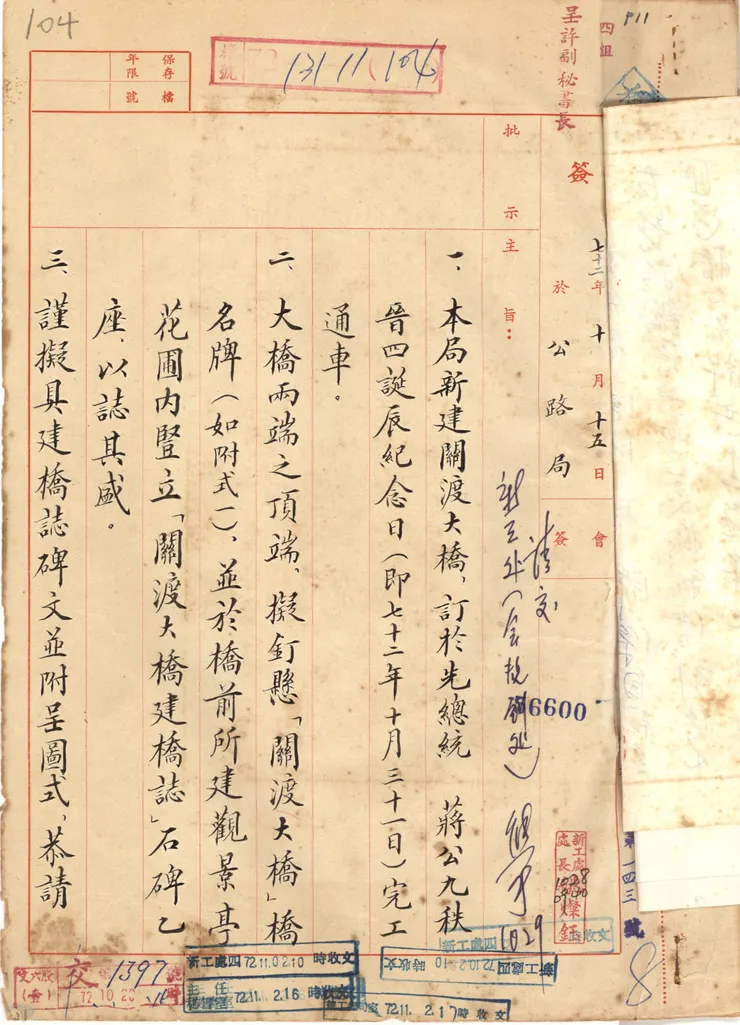 104
檔號 72 131 11 (104)
保存年限
檔號
四組
呈許副秘書長
簽
七十二年十月十五日
於公路局
會簽
批示
主旨：
一、本局新建關渡大橋，訂於先總統　蔣公九秩
晉四誕辰紀念日（即七十二年十月三十一日）完工
通車。
二、大橋兩端之頂端，擬釘懸「關渡大橋」橋
名牌（如附式一），並於橋前所建觀景亭
花圃內豎立「關渡大橋建橋誌」石碑乙
座，以誌其盛。
三、謹擬具建橋誌碑文並附呈圖式，恭請
請交
6600
1029
新工處處長
第一四三號
8
交 1397 號
72.10.20
新工處四 72.11.02 10 時收文
72.11. 2.16 時收文
新工處四 72.11.02 10 時收文
72.11. 2.17 時收文